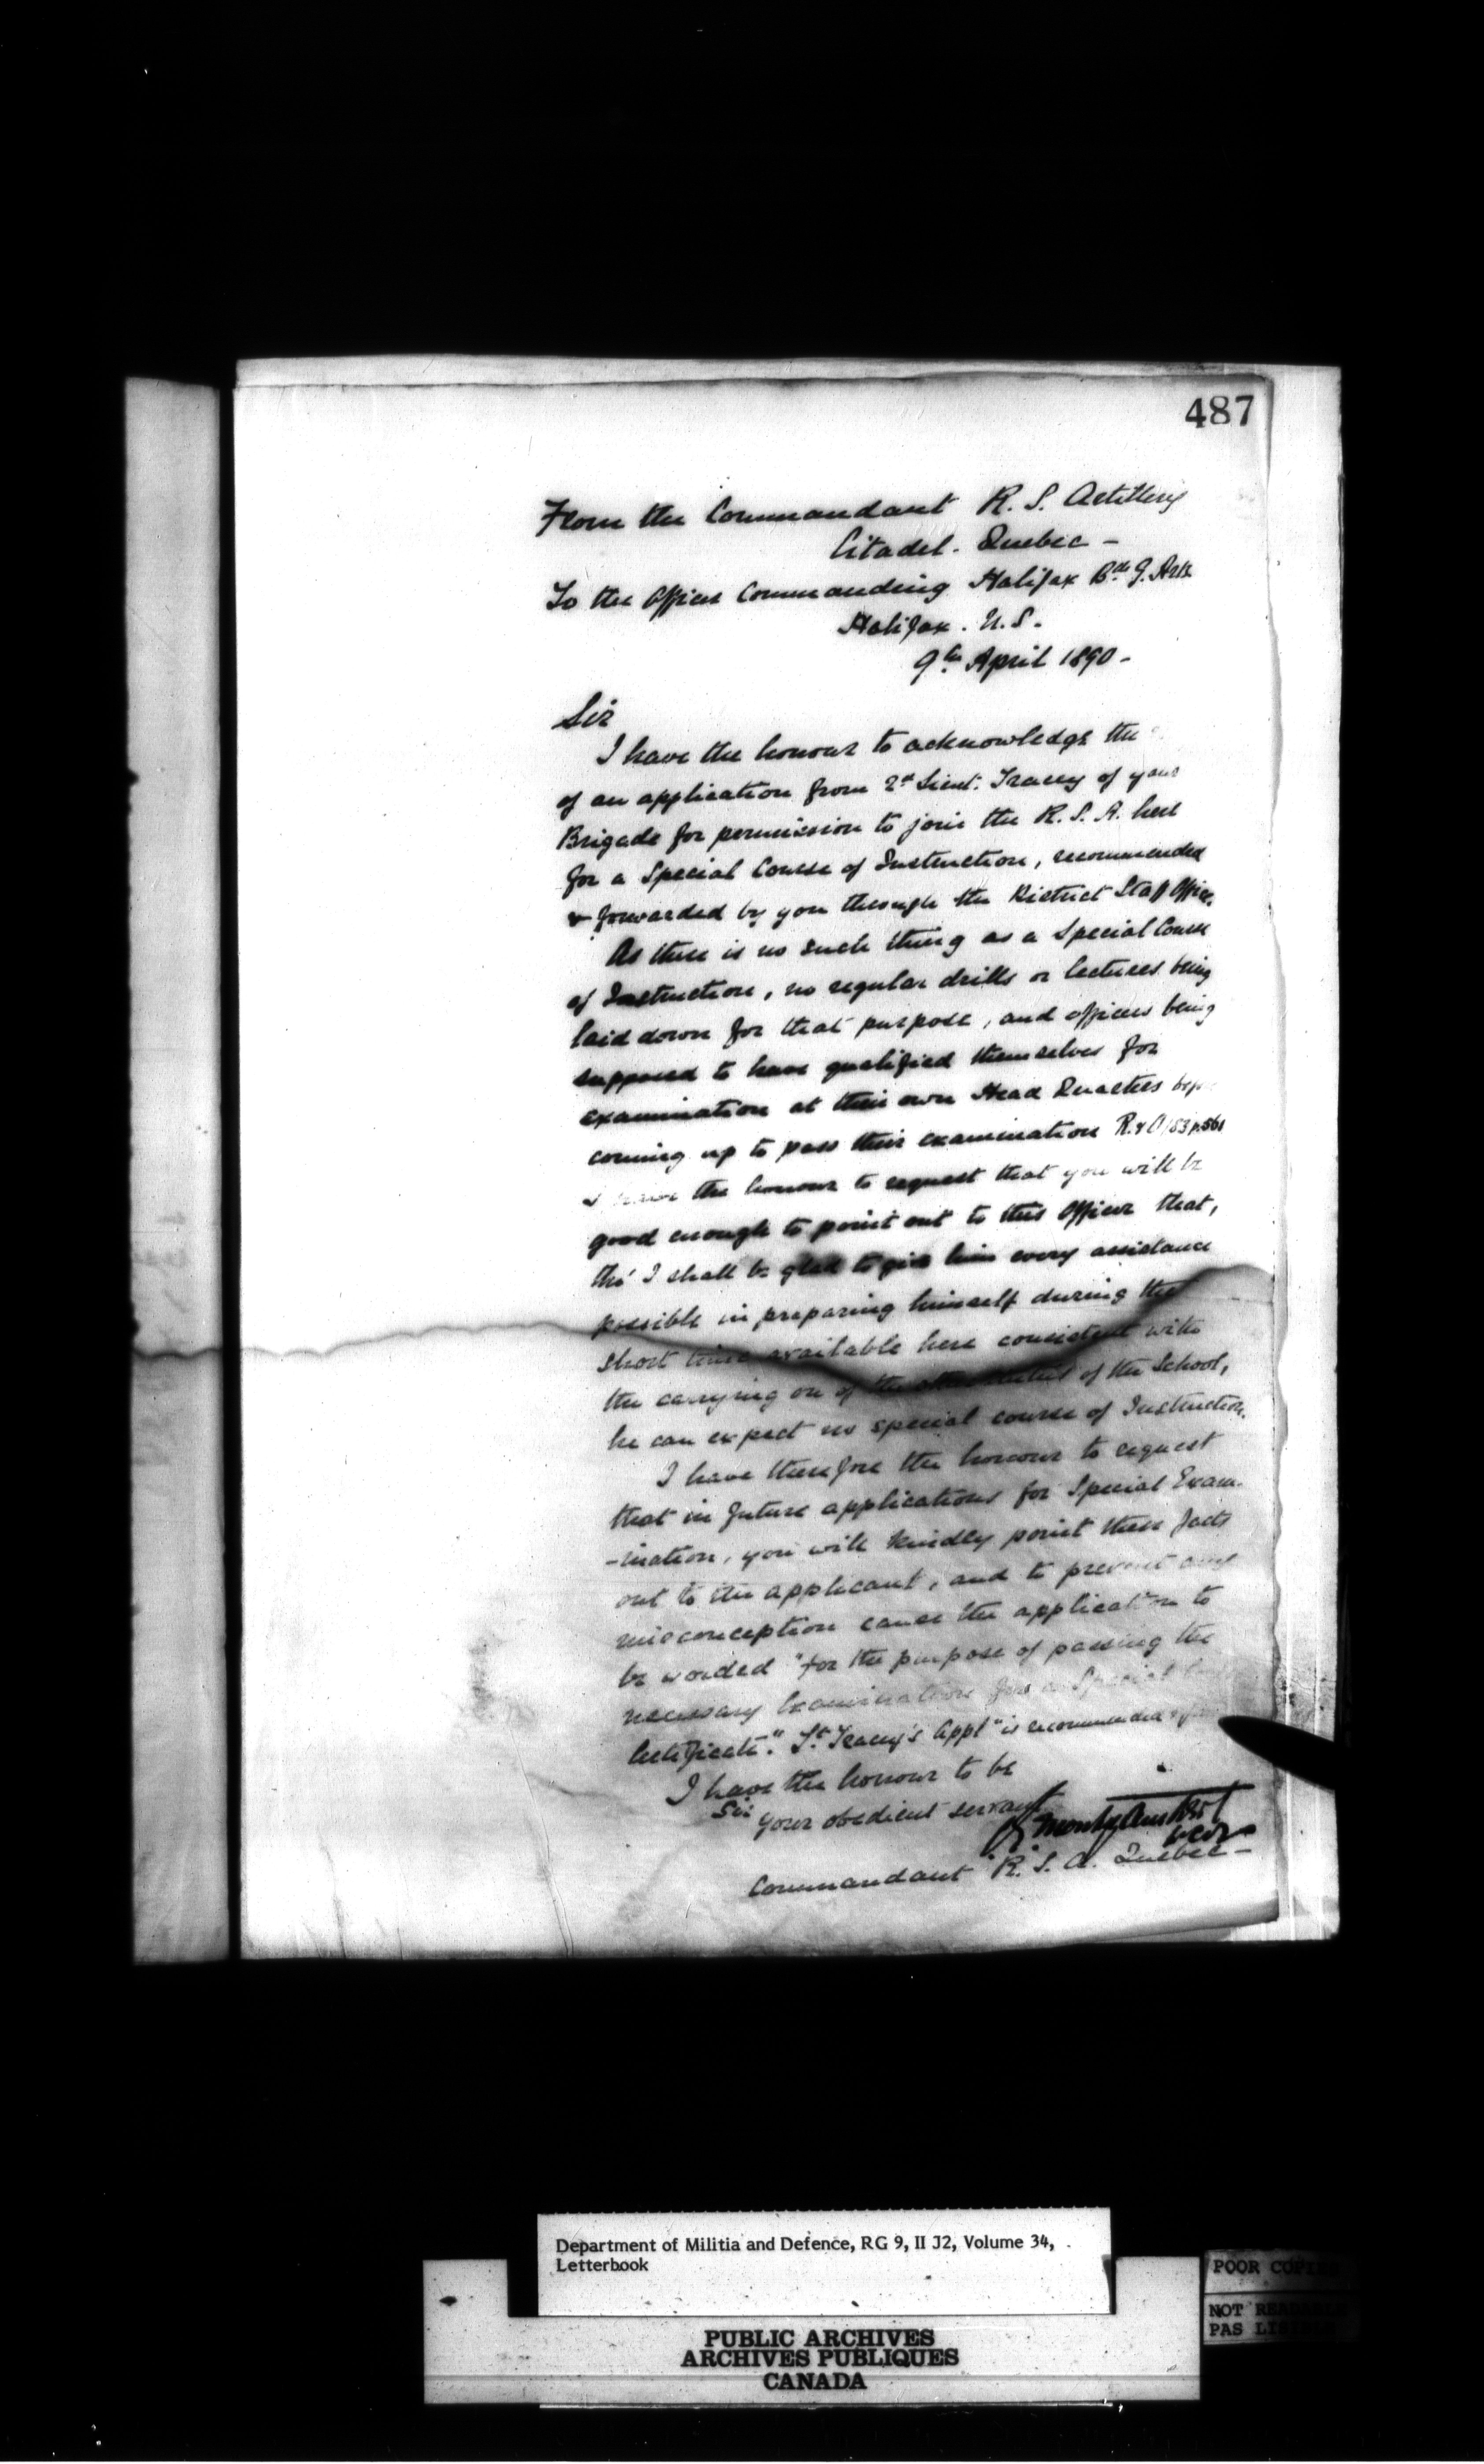 487
From the Commandant R. S. Artillery
Citadel. Quebec -
To the Officer Commanding Halifax Bde G. Arty
Halifax. N.S.
9th April 1890 -
Sir
I have the honour to acknowledge the
of an application from 2d Lieut. Tracey of your
Brigade for permission to join the R. S. A. here
for a Special Course of Instruction, recommended
& forwarded by you through the District Staff Officer.
As there is no such thing as a Special Course
of Instruction, no regular drills or lectures being
laid down for that purpose, and officers being
supposed to have qualified themselves for
examination at their own Head Quarters before
coming up to pass their examination R. & O /83
I have the honour to request that you will be
good enough to point out to this Officer that,
tho' I shall be glad to give him every assistance
possible in preparing himself during the
short time available here consistent with
the carrying on of the other duties of the School,
he can expect no special course of Instruction.
I have therefore the honour to request
that in future applications for Special Exam-
-ination, you will kindly point these facts
out to the applicant, and to prevent any
misconception cause the application to
be worded "for the purpose of passing the
necessary Examination for a Special
Certificate." Lt. Tracey's appln is recommended &
I have the honour to be
Sir
Your obedient servant
Commandant "R." S. A. Quebec -
Department of Militia and Defence, RG 9, II J2, Volume 34,
Letterbook
PUBLIC ARCHIVES
ARCHIVES PUBLIQUES
CANADA
POOR
NOT
PAS